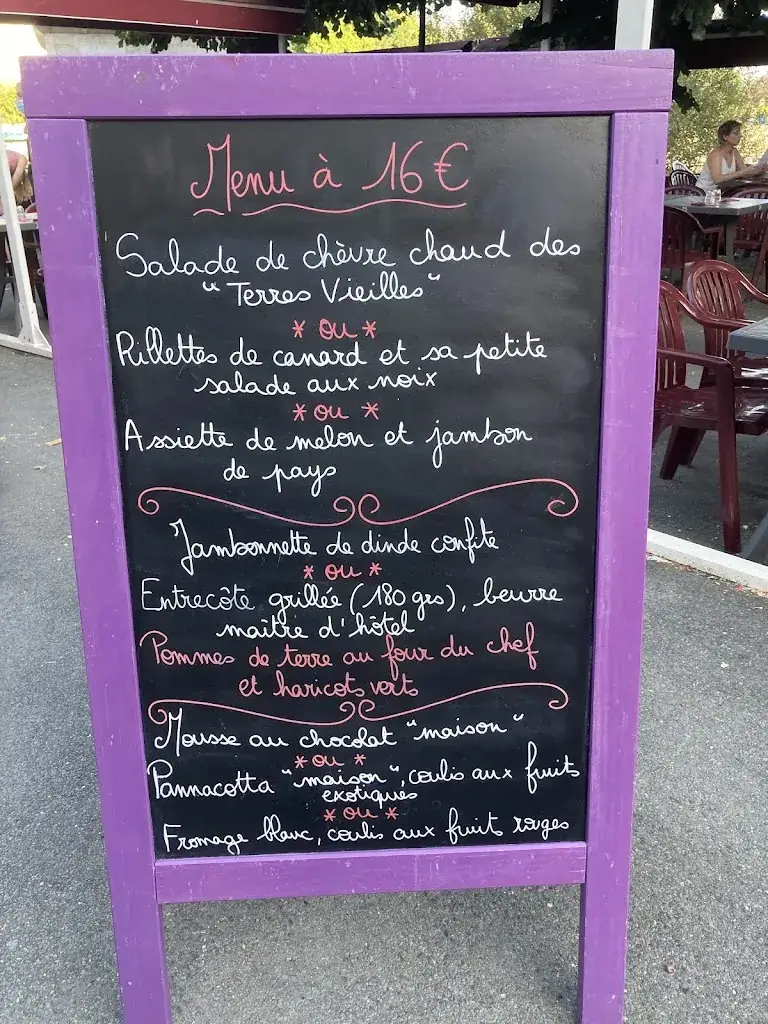 Menu à 16 €
Salade de chèvre chaud des
"Terres Vieilles"
* ou *
Rillettes de canard et sa petite
salade aux noix
* ou *
Assiette de melon et jambon
de pays
Jambonnette de dinde confite
* ou *
Entrecôte grillée (180 grs), beurre
maître d'hôtel
Pommes de terre au four du chef
et haricots verts
Mousse au chocolat "maison"
* ou *
Pannacotta "maison", coulis aux fruits
exotiques
* ou *
Fromage blanc, coulis aux fruit rouges